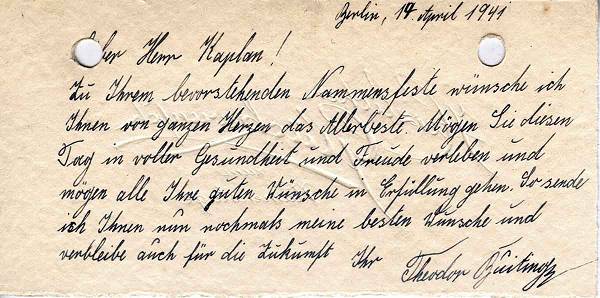 Berlin, 14 April 1941
Herr Kaplan!
Zu Ihrem bevorstehenden Nammensfeste wünsche ich
Ihnen von ganzen Herzen das Allerbeste. Mögen Sie diesen
Tag in voller Gesundheit und Freude verleben und
mögen alle Ihre guten Wünsche in Erfüllung gehen. So sende
ich Ihnen nun nochmals meine besten Wünsche und
verbleibe auch für die Zukunft Ihr
Theodor